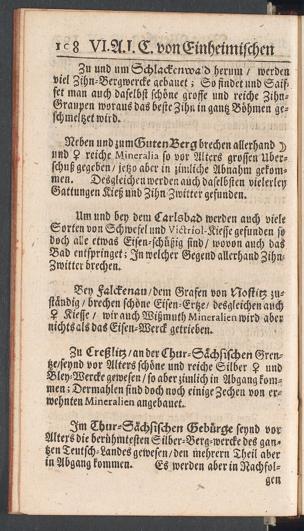 108 VI. A. I. C. von Einheimischen
Zu und um Schlackenwald herum / werden
viel Zihn-Bergwercke gebauet; So findet und Saif-
fet man auch daselbst schöne grosse und reiche Zihn-
Graupen woraus das beste Zihn in gantz Böhmen ge-
schmeltzet wird.
Neben und zum Guten Berg brechen allerhand ☽
und ♀ reiche Mineralia so vor Alters grossen Uber-
schuß gegeben / jetzo aber in zimliche Abnahm gekom-
men. Desgleichen werden auch daselbsten vielerley
Gattungen Kieß und Zihn Zwitter gefunden.
Um und bey dem Carlsbad werden auch viele
Sorten von Schwefel und Victriol-Kiesse gefunden so
doch alle etwas Eisen-schüßig sind / wovon auch das
Bad entspringet; In welcher Gegend allerhand Zihn-
Zwitter brechen.
Bey Falckenau / dem Grafen von Nostitz zu-
ständig / brechen schöne Eisen-Ertze / desgleichen auch
♀ Kiesse / wir auch Wißmuth Mineralien wird aber
nichts als das Eisen-Werck getrieben.
Zu Creßlitz / an der Chur-Sächsischen Gren-
tze / seynd vor Alters schöne und reiche Silber ♀ und
Bley-Wercke gewesen / so aber zimlich in Abgang kom-
men: Dermahlen sind doch noch einige Zechen von er-
wehnten Mineralien angebauet.
Im Chur-Sächsischen Gebürge seynd vor
Alters die berühmtesten Silber-Berg-wercke des gan-
tzen Teutsch-Landes gewesen / den mehrern Theil aber
in Abgang kommen. Es werden aber in Nachfol-
gen